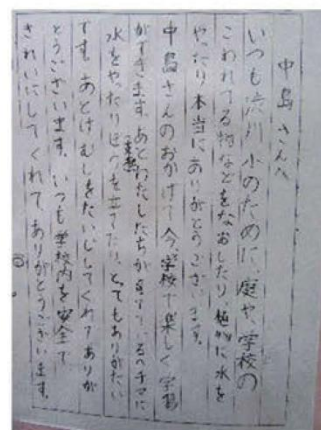 中島さんへ
いつも渋川小のために、庭や学校の
こわれてる物などをなおしたり、植物に水を
やったり本当にありがとうございます。
中島さんのおかげで今、学校で楽しく学習
ができます。あとわたしたちが育てているヘチマに
水をやったりぼうを立てたり、とてもありがたい
です。あとけむしをたいじしてくれてありが
とうございます。いつも学校内を安全で
きれいにしてくれてありがとうございます。